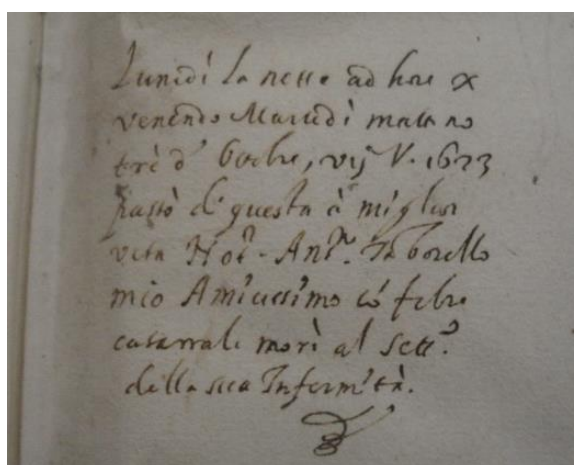 Lunedì la notte ad hore x
venendo Martedì matt no
tre d' 8bre, V. 1623
passò di questa à miglior
vita Not.º Ant.º Taborello
mio Amicissimo cō febre
catarrale morì al sett.º
della sua Infermità.